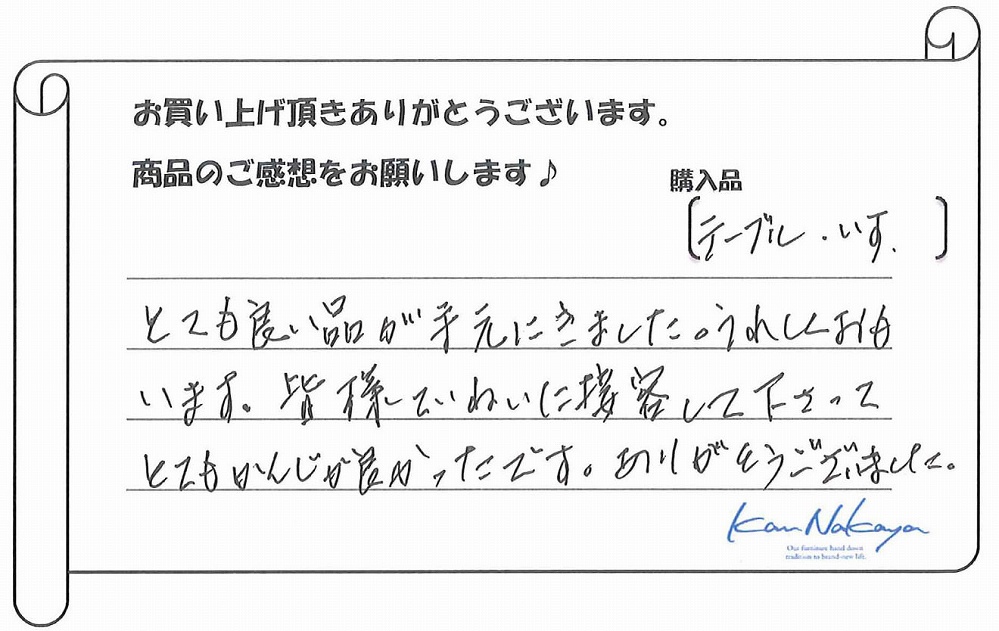 お買い上げ頂きありがとうございます。
商品のご感想をお願いします♪
購入品
[テーブル・いす.]
とても良い品が手元にきました。うれしくおも
います。皆様ていねいに接客して下さって
とてもかんじが良かったです。ありがとうございました。
Kan Nakaya
Our furniture hand down
tradition to brand-new life.